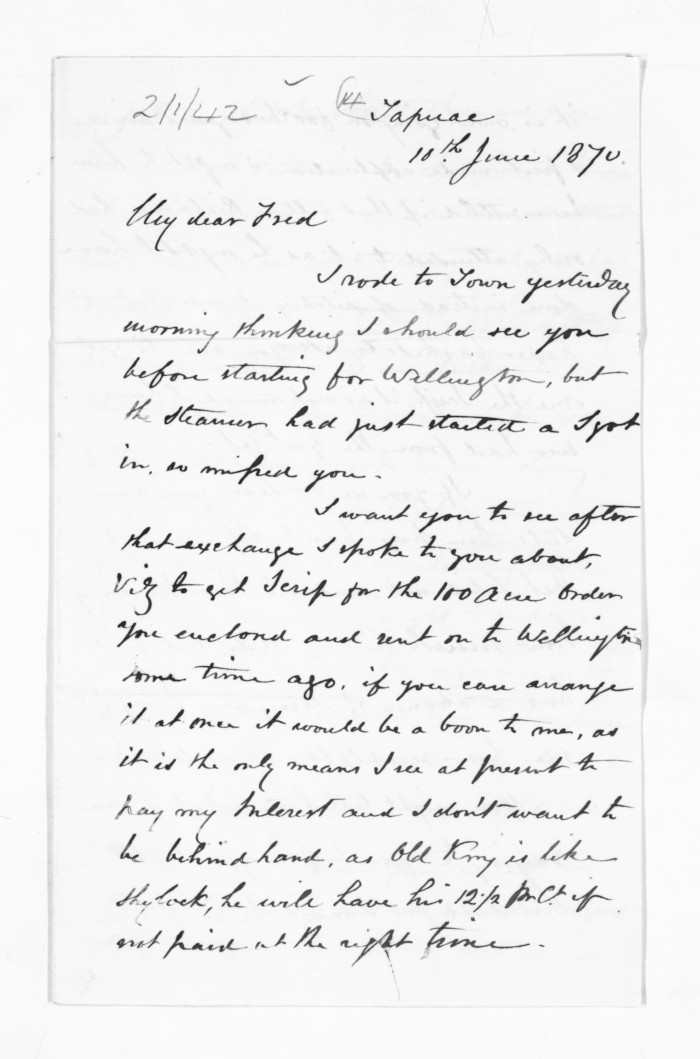 2/1/42 Tapuae
10th June 1870.
My dear Fred
I rode to Town yesterday
morning thinking I should see you
before starting for Wellington, but
the steamer had just started a I got
in, so missed you.
I want you to see after
that exchange I spoke to you about,
Viz to get Scrip for the 100 Acre Order
you enclosed and sent on to Wellington
some time ago, if you can arrange
it at once it would be a boon to me, as
it is the only means I see at present to
pay my Interest and I don't want to
be behind hand, as Old King is like
Shylock, he will have his 12 1/2 Pr Ct if
not paid at the right time.